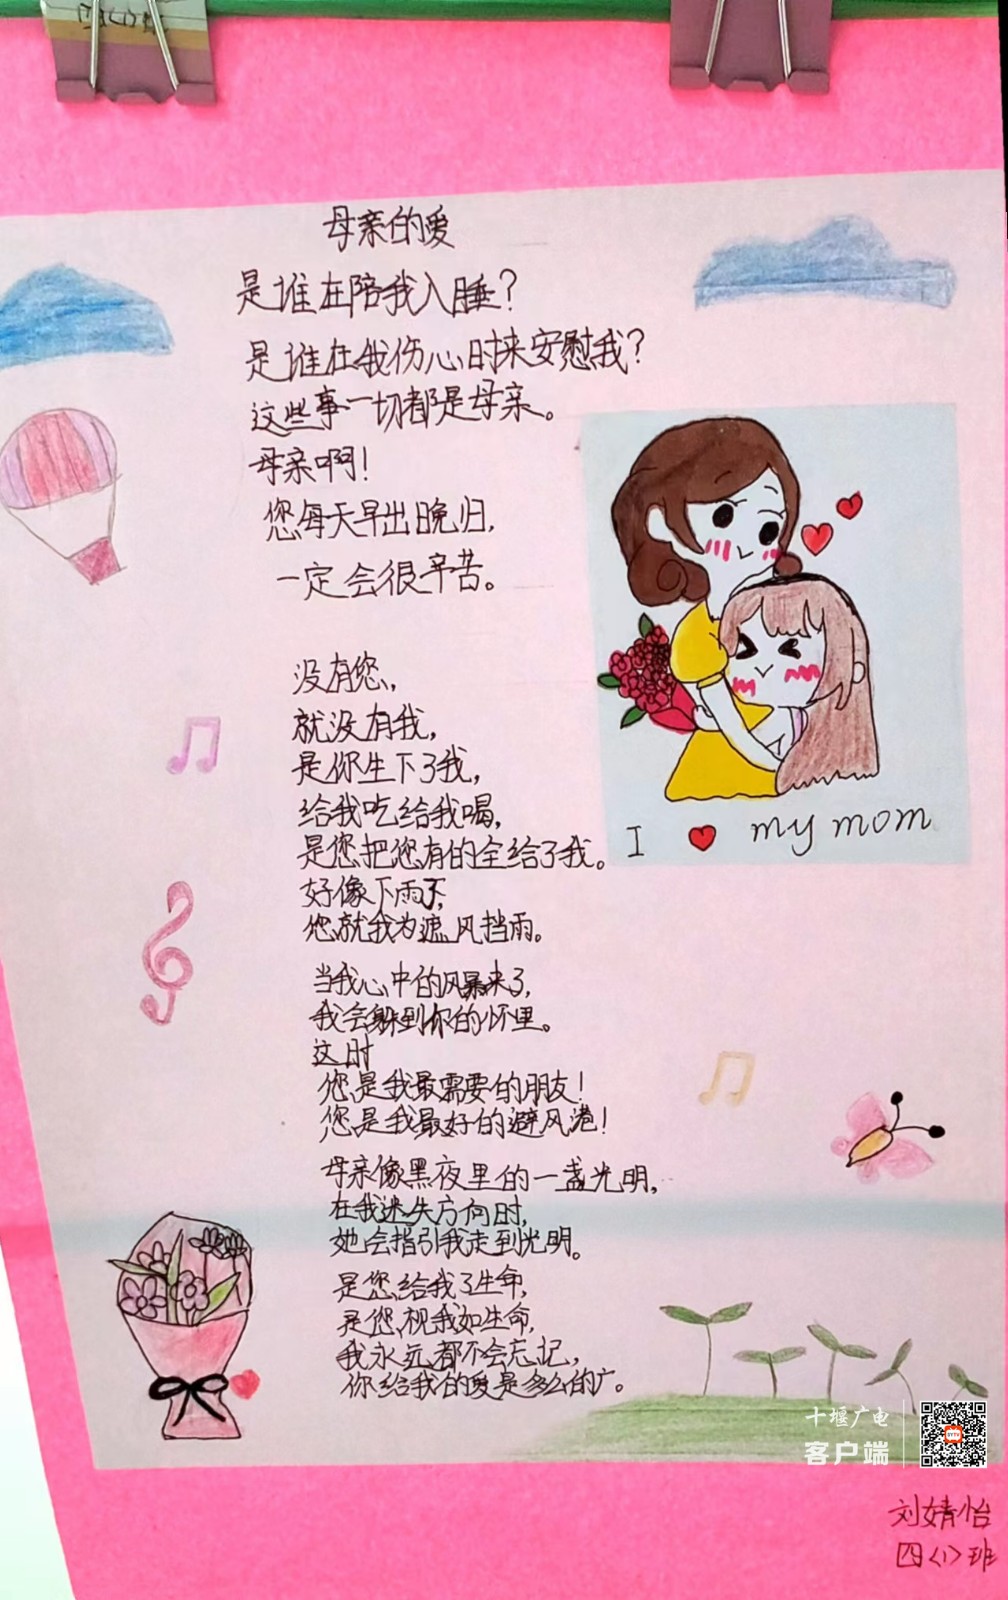 母亲的爱
是谁在陪我入睡?
是谁在我伤心时来安慰我?
这些事一切都是母亲。
母亲啊!
您每天早出晚归,
一定会很辛苦。
没有您,
就没有我,
是你生下了我,
给我吃给我喝,
是您把您有的全给了我。
好像下雨了,
您就我为遮风挡雨。
当我心中的风暴来了,
我会躲到你的怀里。
这时
您是我最需要的朋友!
您是我最好的避风港!
母亲像黑夜里的一盏光明,
在我迷失方向时,
她会指引我走到光明。
是您给我了生命,
是您视我如生命,
我永远都不会忘记,
你给我的爱是多么的广。
I my mom
十堰广电
客户端
刘婧怡
四〈1〉班